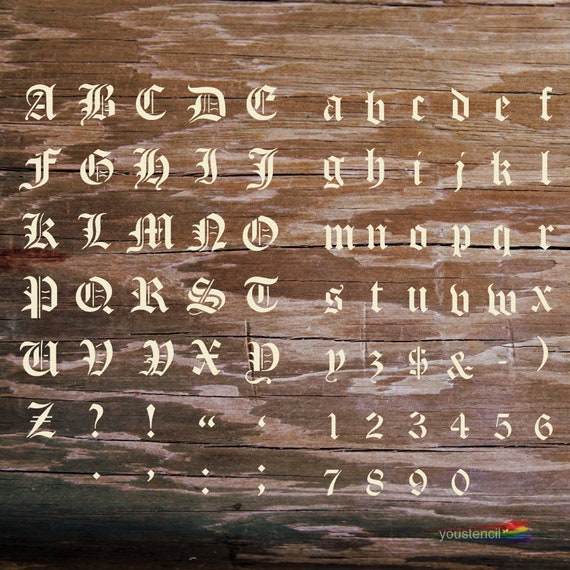 A B C D E a b c d e f
F G H I J g h i j k l
K L M N O m n o p q r
P Q R S T s t u v w x
U V W X Y y z $ & - )
Z ? ! “ ‘ 1 2 3 4 5 6
. ’ : ; 7 8 9 0
youstencil